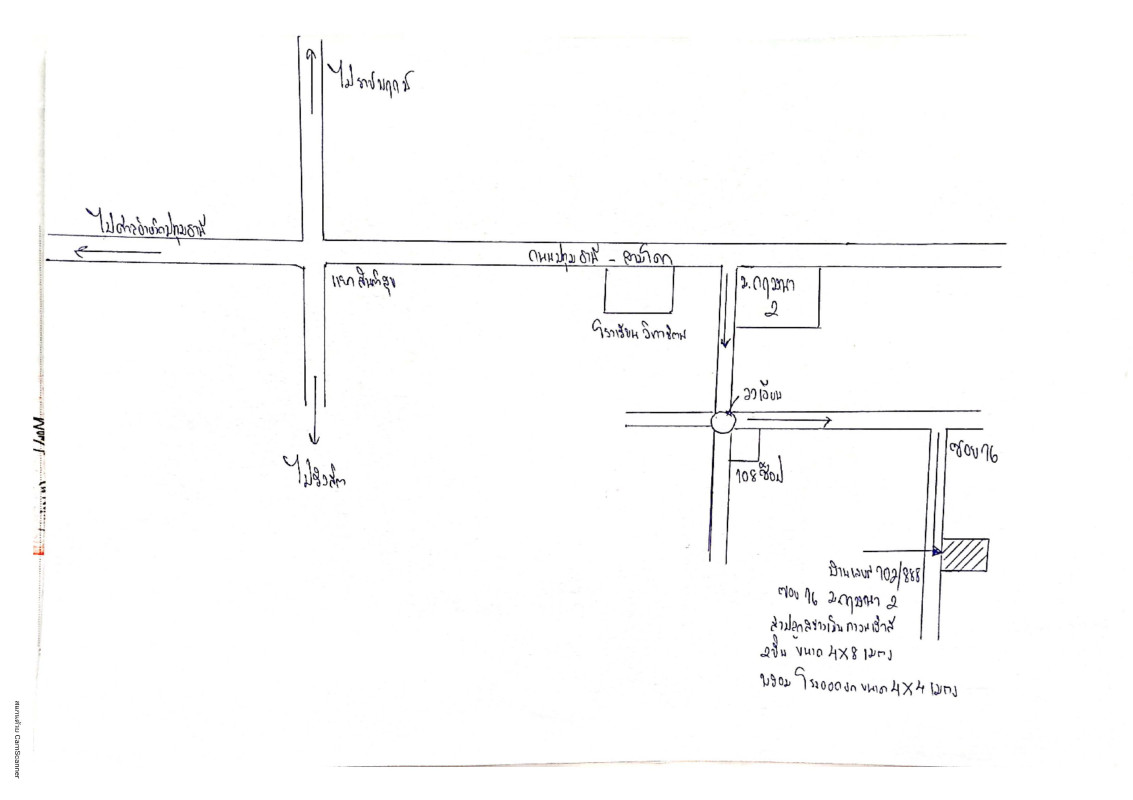 ไปราชพฤกษ์
ไปศาลจังหวัดปทุมธานี
ถนนปทุมธานี - สามโคก
แยกสันติสุข
ม.กฤษณา
2
โรงเรียน
วงเวียน
ซอย 16
108 ช็อป
ไปรังสิต
บ้านเลขที่ 102/888
ซอย 16 ม.กฤษณา 2
2 ชั้น ขนาด 4X8 เมตร
พร้อมโรงจอดรถ ขนาด 4X4 เมตร
สแกนด้วย CamScanner